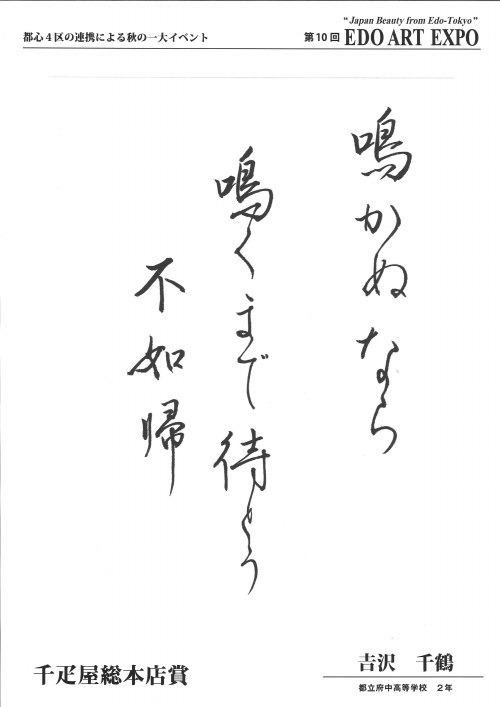 都心4区の連携による秋の一大イベント
第10回
"Japan Beauty from Edo-Tokyo"
EDO ART EXPO
鳴かぬなら
鳴くまで待とう
不如帰
千疋屋総本店賞
吉沢 千鶴
都立府中高等学校 2年